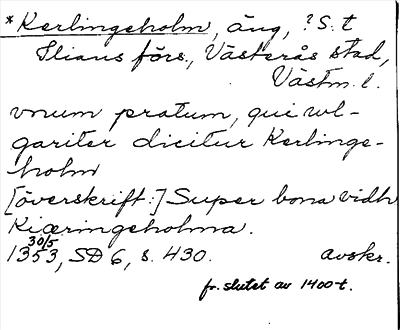 *Kerlingeholm, äng, ? S:t
Ilians förs., Västerås stad,
Västm. l.
vnum pratum, qui wl-
gariter dicitur Kerlinge-
holm
[överskrift:] Super bona vidh
Kiæringeholma.
30/5
1353, SD 6, s. 430. avskr.
fr. slutet av 1400-t.